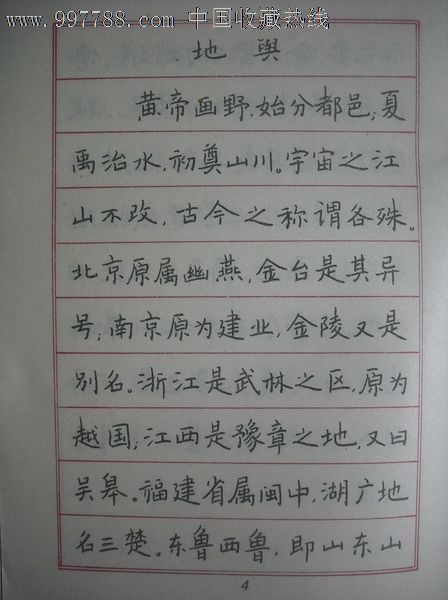 www.997788.com 中国收藏热线
地舆
黄帝画野,始分都邑;夏
禹治水,初奠山川。宇宙之江
山不改,古今之称谓各殊。
北京原属幽燕,金台是其异
号;南京原为建业,金陵又是
别名。浙江是武林之区,原为
越国;江西是豫章之地,又曰
吴皋。福建省属闽中,湖广地
名三楚。东鲁西鲁,即山东山
4